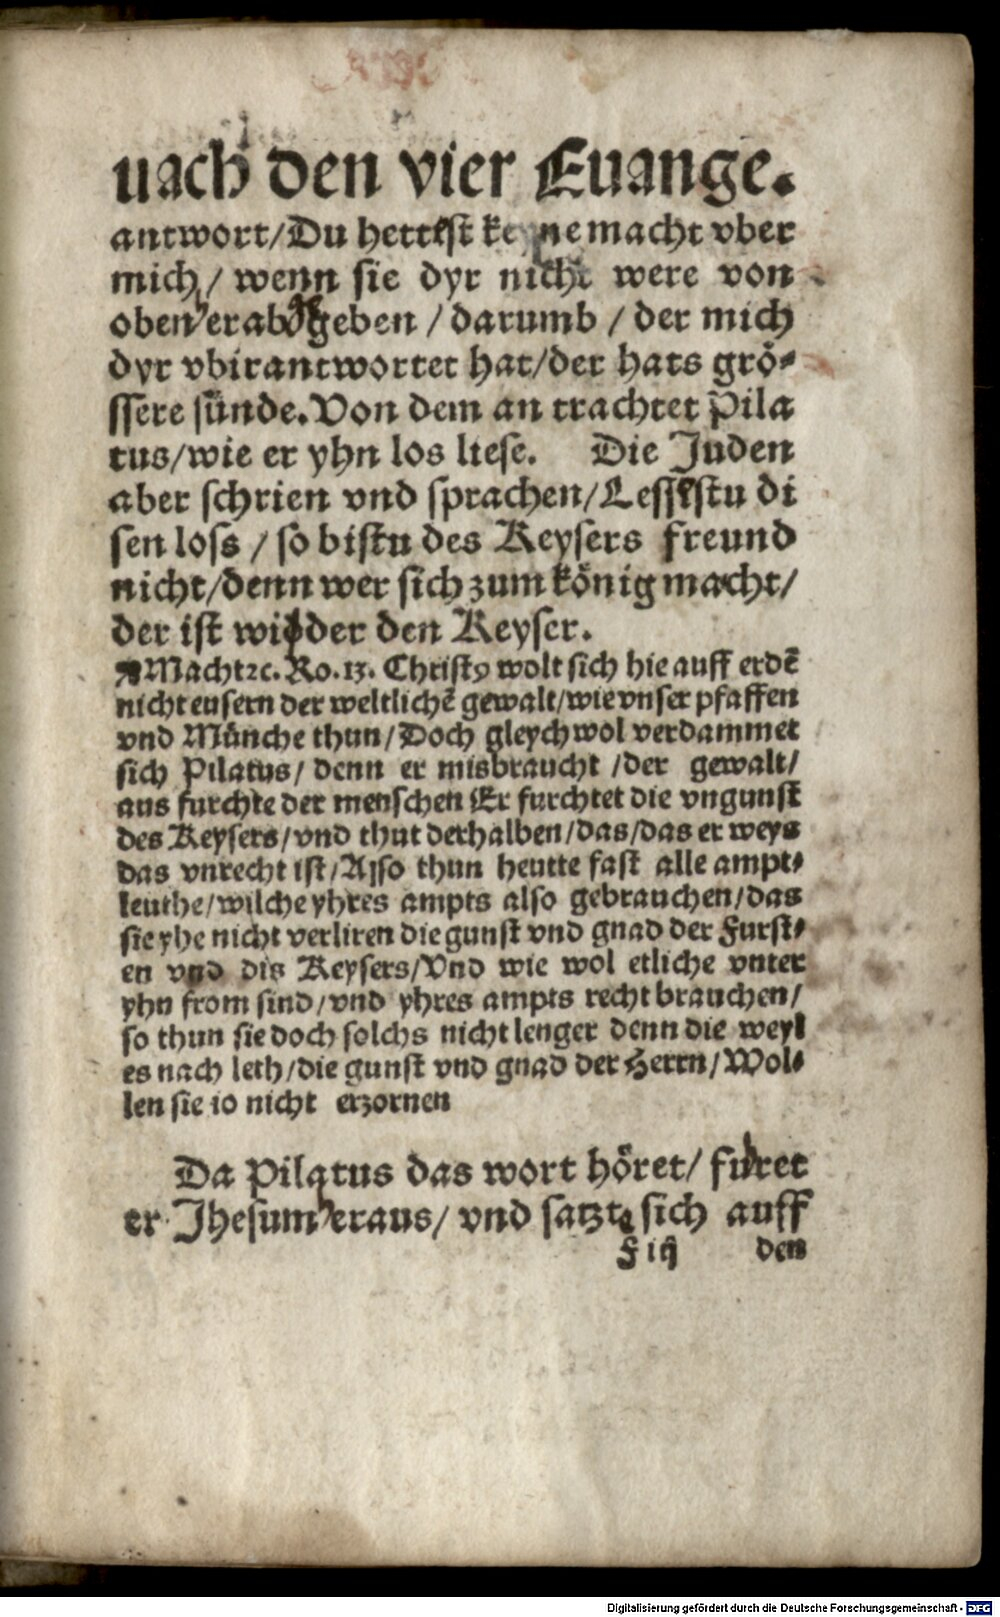 uach den vier Euange.
antwort/Du hettest keyne macht vber
mich / wenn sie dyr nicht were von
oben erab geben / darumb / der mich
dyr vbirantwortet hat/der hats grö⸗
ssere sünde. Von dem an trachtet Pila
tus/wie er yhn los liese. Die Juden
aber schrien vnd sprachen/Lessestu di
sen loss / so bistu des Keysers freund
nicht/denn wer sich zum könig macht/
der ist widder den Keyser.
Macht ꝛc. Ro. 13. Christꝰ wolt sich hie auff erdē
nicht eusern der weltlichē gewalt/wie vnser pfaffen
vnd Münche thun/Doch gleychwol verdammet
sich Pilatus/ denn er misbraucht /der gewalt/
aus furchte der menschen Er furchtet die vngunst
des Keysers/vnd thut derhalben/das/das er weys
das vnrecht ist/Also thun heutte fast alle ampt⸗
leuthe/wilche yhres ampts also gebrauchen/das
sie yhe nicht verliren die gunst vnd gnad der Furst⸗
en vnd dis Keysers/Vnd wie wol etliche vnter
yhn from sind/vnd yhres ampts recht brauchen/
so thun sie doch solchs nicht lenger denn die weyl
es nach leth/die gunst vnd gnad der Herrn/Wol⸗
len sie io nicht erzornen
Da Pilatus das wort höret/ füret
er Jhesum eraus/ vnd satzte sich auff
F iij den
Digitalisierung gefördert durch die Deutsche Forschungsgemeinschaft - DFG